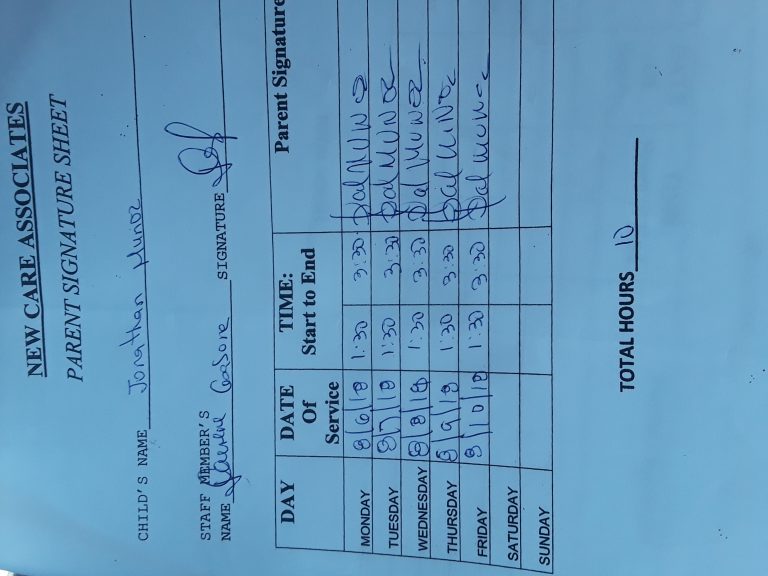 NEW CARE ASSOCIATES
PARENT SIGNATURE SHEET
CHILD'S NAME Jonathan Munoz
STAFF MEMBER'S
NAME SIGNATURE
DAY DATE Of Service TIME: Start to End Parent Signature
MONDAY 8/6/18 1:30 3:30 Dal MUNOZ
TUESDAY 8/7/18 1:30 3:30 Dal MUNOZ
WEDNESDAY 8/8/18 1:30 3:30 Dal MUNOZ
THURSDAY 8/9/18 1:30 3:30 Dal MUNOZ
FRIDAY 8/10/18 1:30 3:30 Dal MUNOZ
SATURDAY
SUNDAY
TOTAL HOURS 10